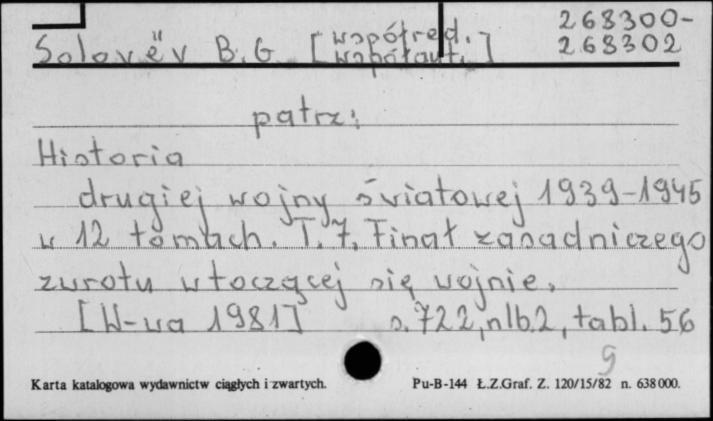 268300-
Solovëv B.G. [współred.
współaut.] 268302
patrz:
Historia
drugiej wojny światowej 1939-1945
w 12 tomach. T. 7, Finał zasadniczego
zwrotu w toczącej się wojnie.
[W-wa 1981] s. 722, nlb2, tabl. 56
9
Karta katalogowa wydawnictw ciągłych i zwartych. Pu-B-144 Ł.Z.Graf. Z. 120/15/82 n. 638000.